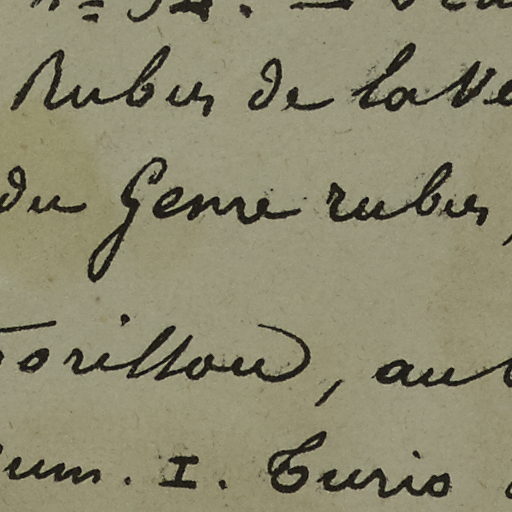 Rubus de la Ve
du Genre rubus,
orillou, au
um. I. Turio